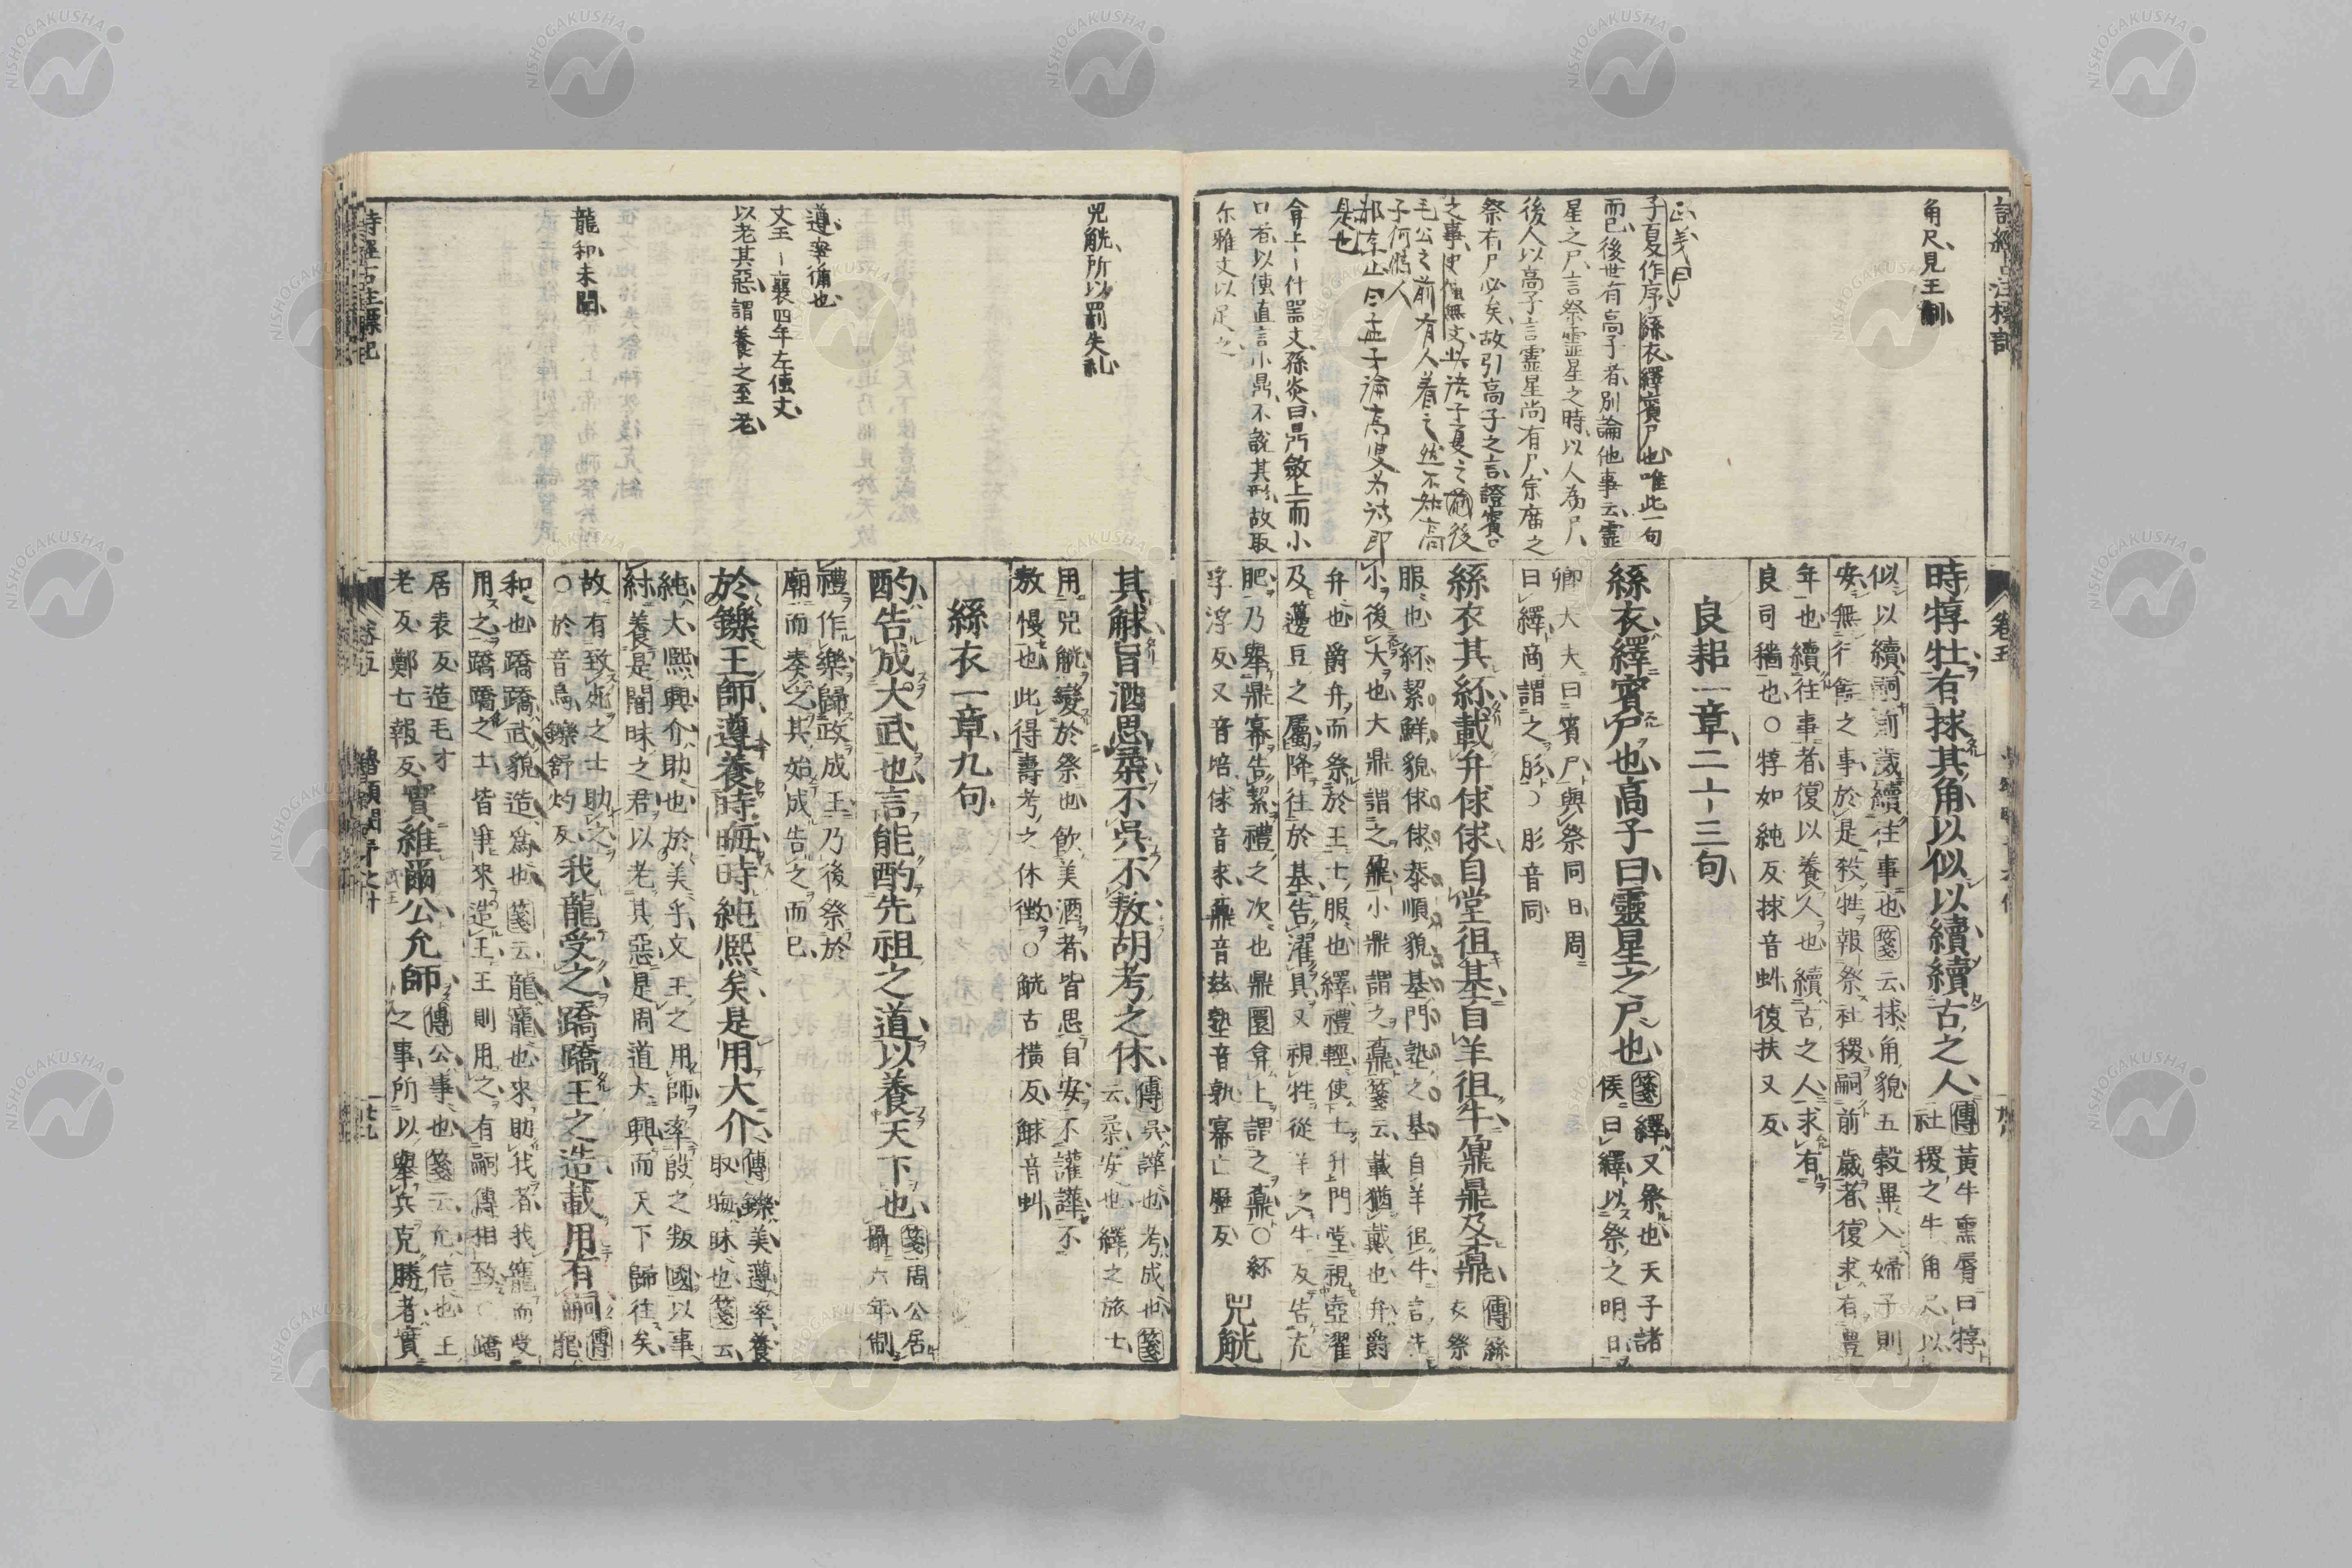 角尺見王制
正義曰
子夏作序絲衣繹賓尸也唯此一句
而已後世有高子者別論他事云靈
星之尸言祭靈星之時以人為尸
後人以高子言靈星尚有尸宗廟之
祭有尸必矣故引高子之言證賓尸
毛公之前有人着之然不知高
子何時人
是也
弇上什器文孫炎曰鼎斂上而小
口者以傳直言小鼎不說其形故取
尓雅文以足之
時犉牡有捄其角以似以續續古之人
傳黃牛黑脣曰犉
社稷之牛角尺以
似以續嗣前歲續往事也箋云捄角貌五穀畢入婦子則
安無行饁之事於是殺牲報祭社稷嗣前歲者復求有豊
年也續往事者復以養人也續古之人求有
良司穡也○犉如純反捄音虯復扶又反
良耜一章二十三句
絲衣繹賓尸也高子曰靈星之尸也
箋繹又祭也天子諸
侯曰繹以祭之明日
卿大夫曰賓尸與祭同日周
曰繹商謂之肜○肜音同
絲衣其紑載弁俅俅自堂徂基自羊徂牛鼐鼎及鼒
傳絲
衣祭
服也紑絜鮮貌俅俅恭順貌基門塾之基自羊徂牛言先
小後大也大鼎謂之鼐小鼎謂之鼒箋云載猶戴也弁爵
弁也爵弁而祭於王士服也繹禮輕使士升門堂視壺濯
及籩豆之屬降往於基告濯具又視牲從羊之牛反告充
肥乃舉鼎冪告絜禮之次也鼎圜弇上謂之鼒○紑
孚浮反又音培俅音求鼒音玆塾音孰冪亡歷反
兕觥
兕觥所以罰失礼
遵率循也
文王－襄四年左傳文
以老其惡謂養之至老
龍和未聞
其觩旨酒思柔不吳不敖胡考之休
傳吳譁也考成也箋
云柔安也繹之旅士
用兕觥變於祭也飲美酒者皆思自安不讙譁不
敖慢也此得壽考之休徵○觥古橫反觩音虯
絲衣一章九句
酌告成大武也言能酌先祖之道以養天下也
箋周公居
攝六年制
禮作樂歸政成王乃後祭於
廟而奏之其始成告之而已
於鑠王師遵養時晦時純熙矣是用大介
傳鑠美遵率養
取晦昧也箋云
純大熙興介助也於美乎文王之用師率殷之叛國以事
紂養是闇昧之君以老其惡是周道大興而天下歸往矣
故有致死之士助之
○於音烏鑠舒灼反
我龍受之蹻蹻王之造載用有嗣
傳
龍
和也蹻蹻武貌造為也箋云龍寵也來助我者我寵而受
用之蹻蹻之士皆爭來造王王則用之有嗣傳相致○蹻
居表反造毛才
老反鄭七報反
實維爾公允師
傳公事也箋云允信也王
之事所以舉兵克勝者實